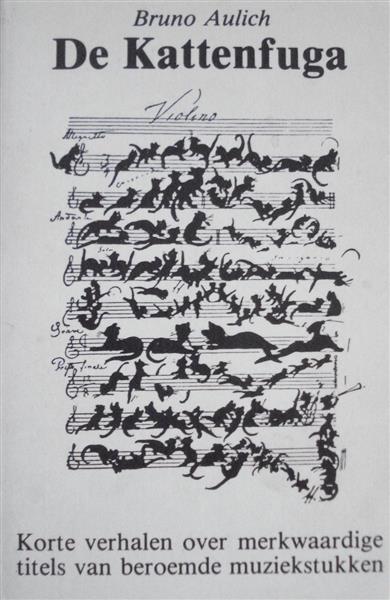 Bruno Aulich
De Kattenfuga
Violino
Allegretto
Andante
Solo
Grave
Korte verhalen over merkwaardige
titels van beroemde muziekstukken